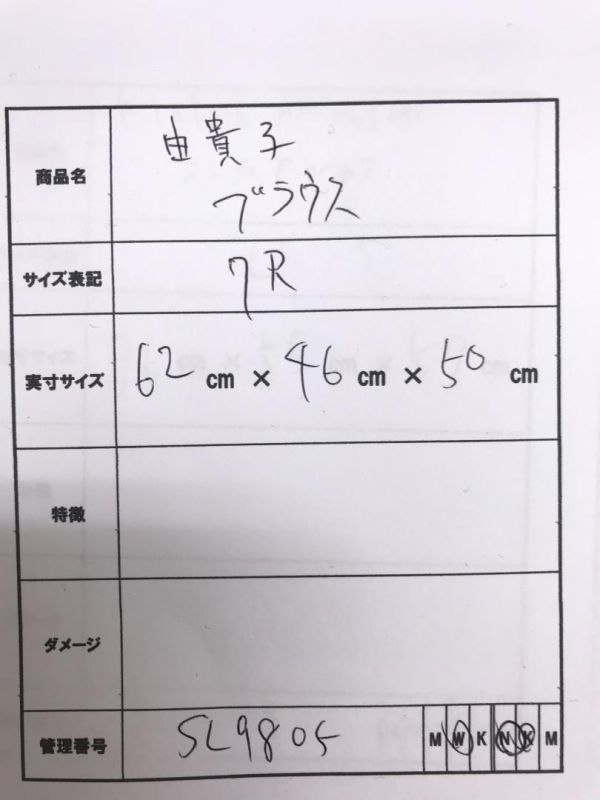 商品名
由貴子
ブラウス
サイズ表記 7R
実寸サイズ 62 cm × 46 cm × 50 cm
特徴
ダメージ
管理番号 SL9805 M W K N K M